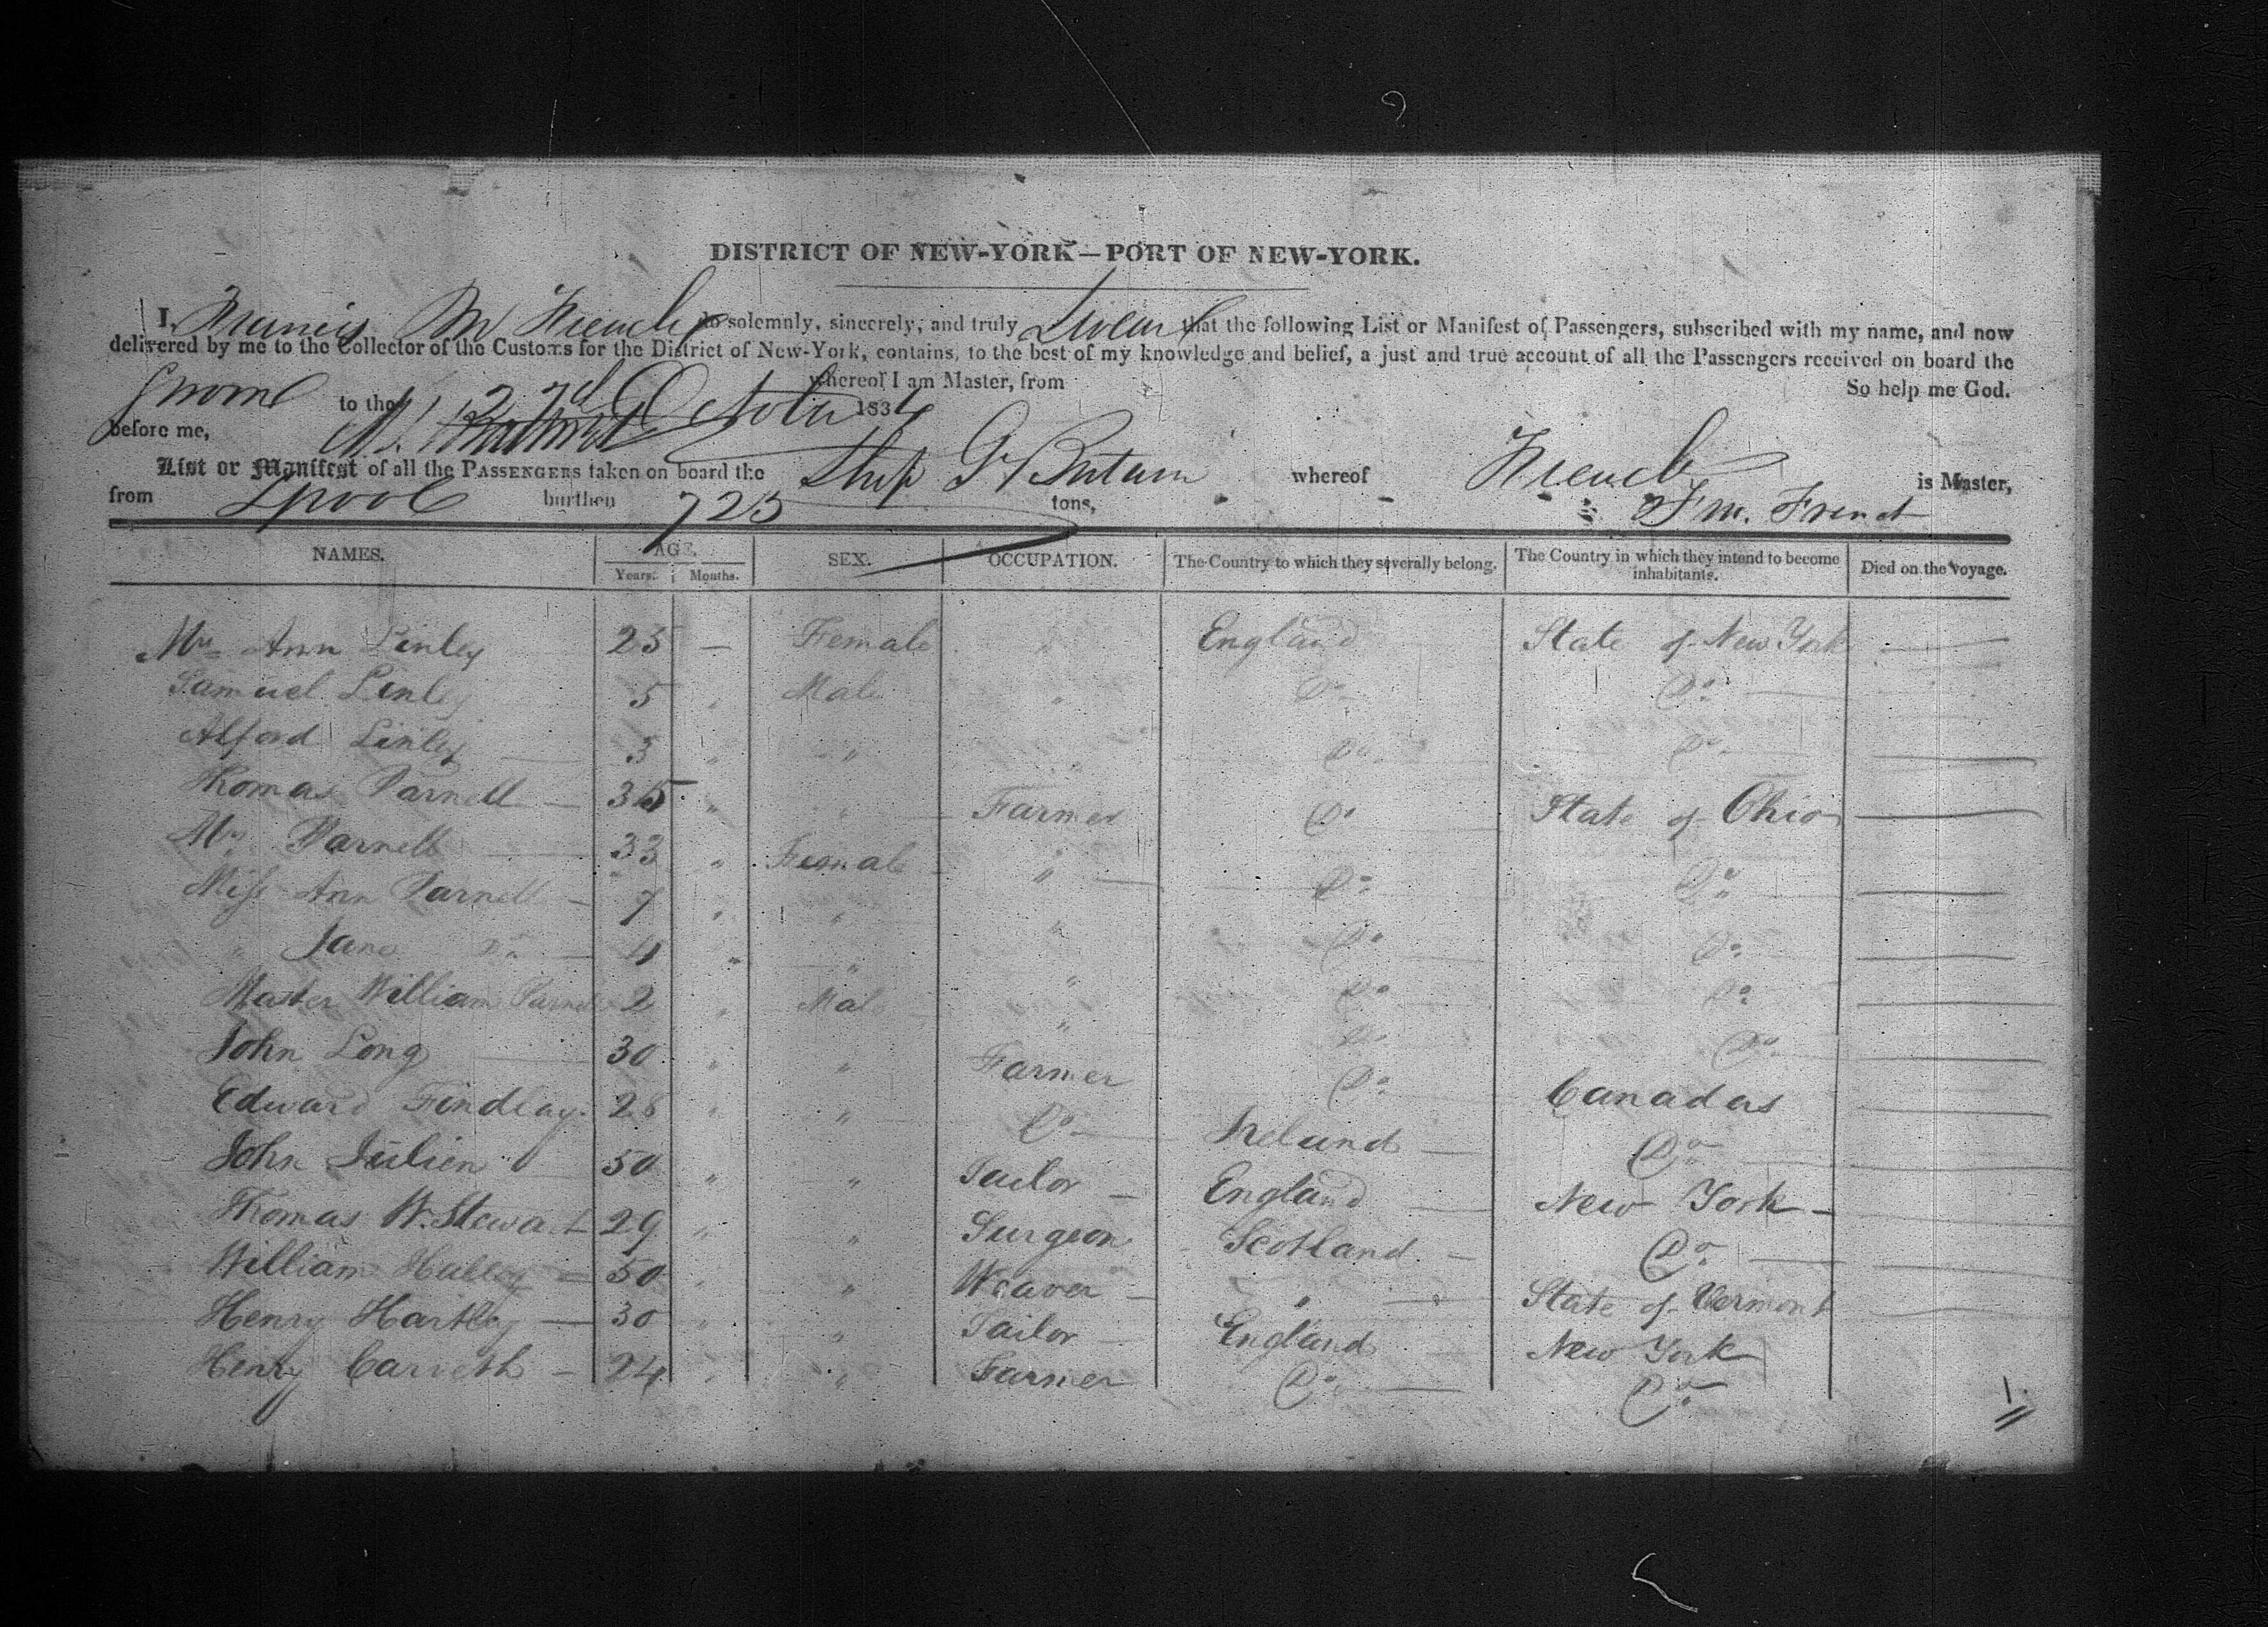 DISTRICT OF NEW-YORK—PORT OF NEW-YORK.
I, Francis M French do solemnly, sincerely, and truly Swear that the following List or Manifest of Passengers, subscribed with my name, and now
delivered by me to the Collector of the Customs for the District of New-York, contains, to the best of my knowledge and belief, a just and true account of all the Passengers received on board the
whereof I am Master, from So help me God.
Sworn to the 27d October 1834
before me,
List or Manifest of all the PASSENGERS taken on board the Ship Gt Britain whereof French is Master,
from Lpool burthen 725 tons, F M. French
NAMES. AGE. SEX. OCCUPATION. The Country to which they severally belong. The Country in which they intend to become inhabitants. Died on the voyage.
Years. Months.
Mrs Ann Linley 25 — Female " England State of New York —
Samuel Linley 5 " Male " Do Do —
Alford Linley 3 " " " Do Do —
Thomas Parnell — 35 " " Farmer Do State of Ohio —
Mrs Parnell — 33 " Female " Do Do —
Miss Ann Parnell — 7 " " Do Do —
" Jane Do — 4 " " " Do Do —
Master William Parnell 2 " Male " Do Do —
John Long — 30 " " Farmer Do Canadas —
Edward Findlay 28 " " Do Ireland — Do —
John Julien 50 " " Tailor — England New York —
Thomas W. Stewart 29 " " Surgeon Scotland — Do —
William Hulley — 50 " " Weaver — " — State of Vermont
Henry Hartley — 30 " " Tailor — England New York
Henry Carveth — 24 " " Farmer Do — Do